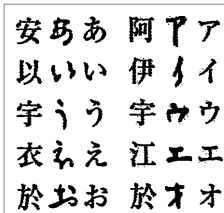 安 あ あ 阿 ア ア
以 い い 伊 イ イ
宇 う う 宇 ウ ウ
衣 え え 江 エ エ
於 お お 於 オ オ